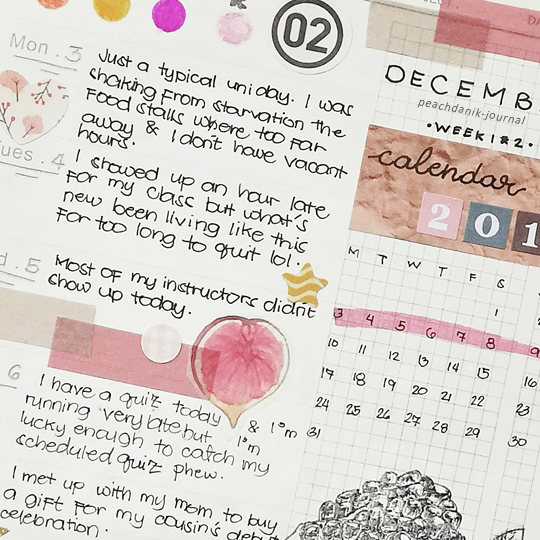 02
Mon. 3
Just a typical uni day. I was
shaking from starvation the
food stalls where too far
away & I don't have vacant
hours.
ues. 4
I showed up an hour late
for my class but what's
new been living like this
for too long to quit lol.
d. 5
Most of my instructors didn't
show up today.
6
I have a quiz today & I'm
running very late but I'm
lucky enough to catch my
scheduled quiz phew.
I met up with my mom to buy
a gift for my cousin's debut
celebration.
DECEMB
peachdanik-journal
•WEEK 1&2•
calendar
201
M T W T F S
1
3 4 5 6 7 8 9
10 11 12 13 14 15 16
17 18 19 20 21 22 23
24 25 26 27 28 29 30
31